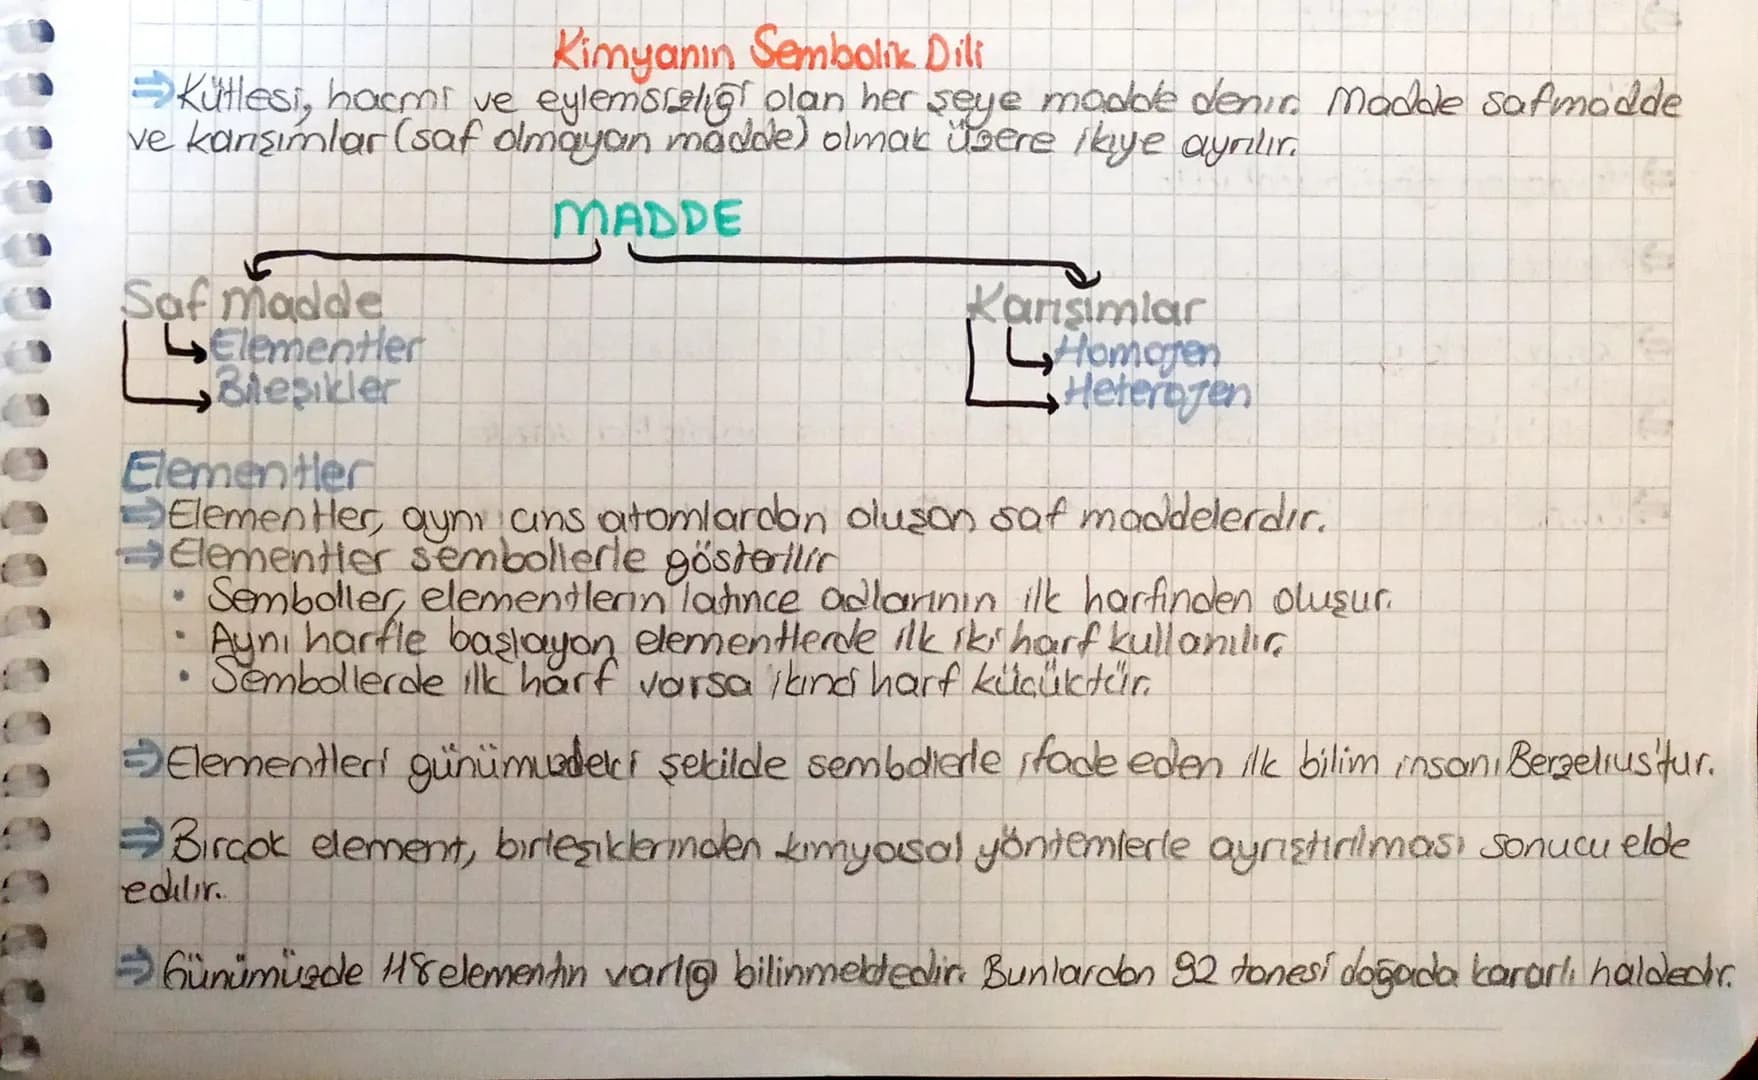 Kimyanın Sembolik Dili
⇒Kütlesi, hacmi ve eylemsizliği olan her şeye madde denir. Madde saf madde
ve karışımlar (saf olmayan madde) olmak üzere ikiye ayrılır.
MADDE
Saf Madde
Karışımlar
Elementler
Homojen
Bileşikler
Heterojen
Elementler
⇒Elementler, aynı cins atomlardan oluşan saf maddelerdir.
⇒Elementler sembollerle gösterilir
• Semboller, elementlerin latince adlarının ilk harfinden oluşur.
• Aynı harfle başlayan elementlerde ilk iki harf kullanılır.
• Sembollerde ilk harf varsa ikinci harf küçüktür.
⇒Elementleri günümüzdeki şekilde sembollerle ifade eden ilk bilim insanı Berzelius'tur.
⇒Birçok element, birleşiklerinden kimyasal yöntemlerle ayrıştırılması sonucu elde
edilir.
⇒Günümüzde 118 elementin varlığı bilinmektedir. Bunlardan 92 tanesi doğada kararlı haldedir.